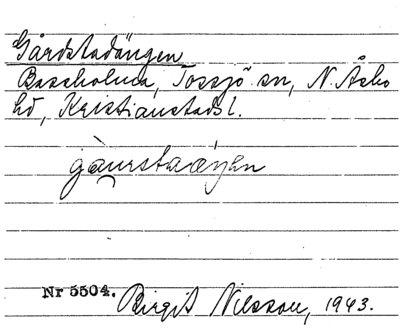 Gårdstadängen
Boxholma, Tossjö sn, N. Åsbo
hd, Kristianstads l.
gàu̯rstaǽŋen
Nr 5504. Birgit Nilsson, 1943.